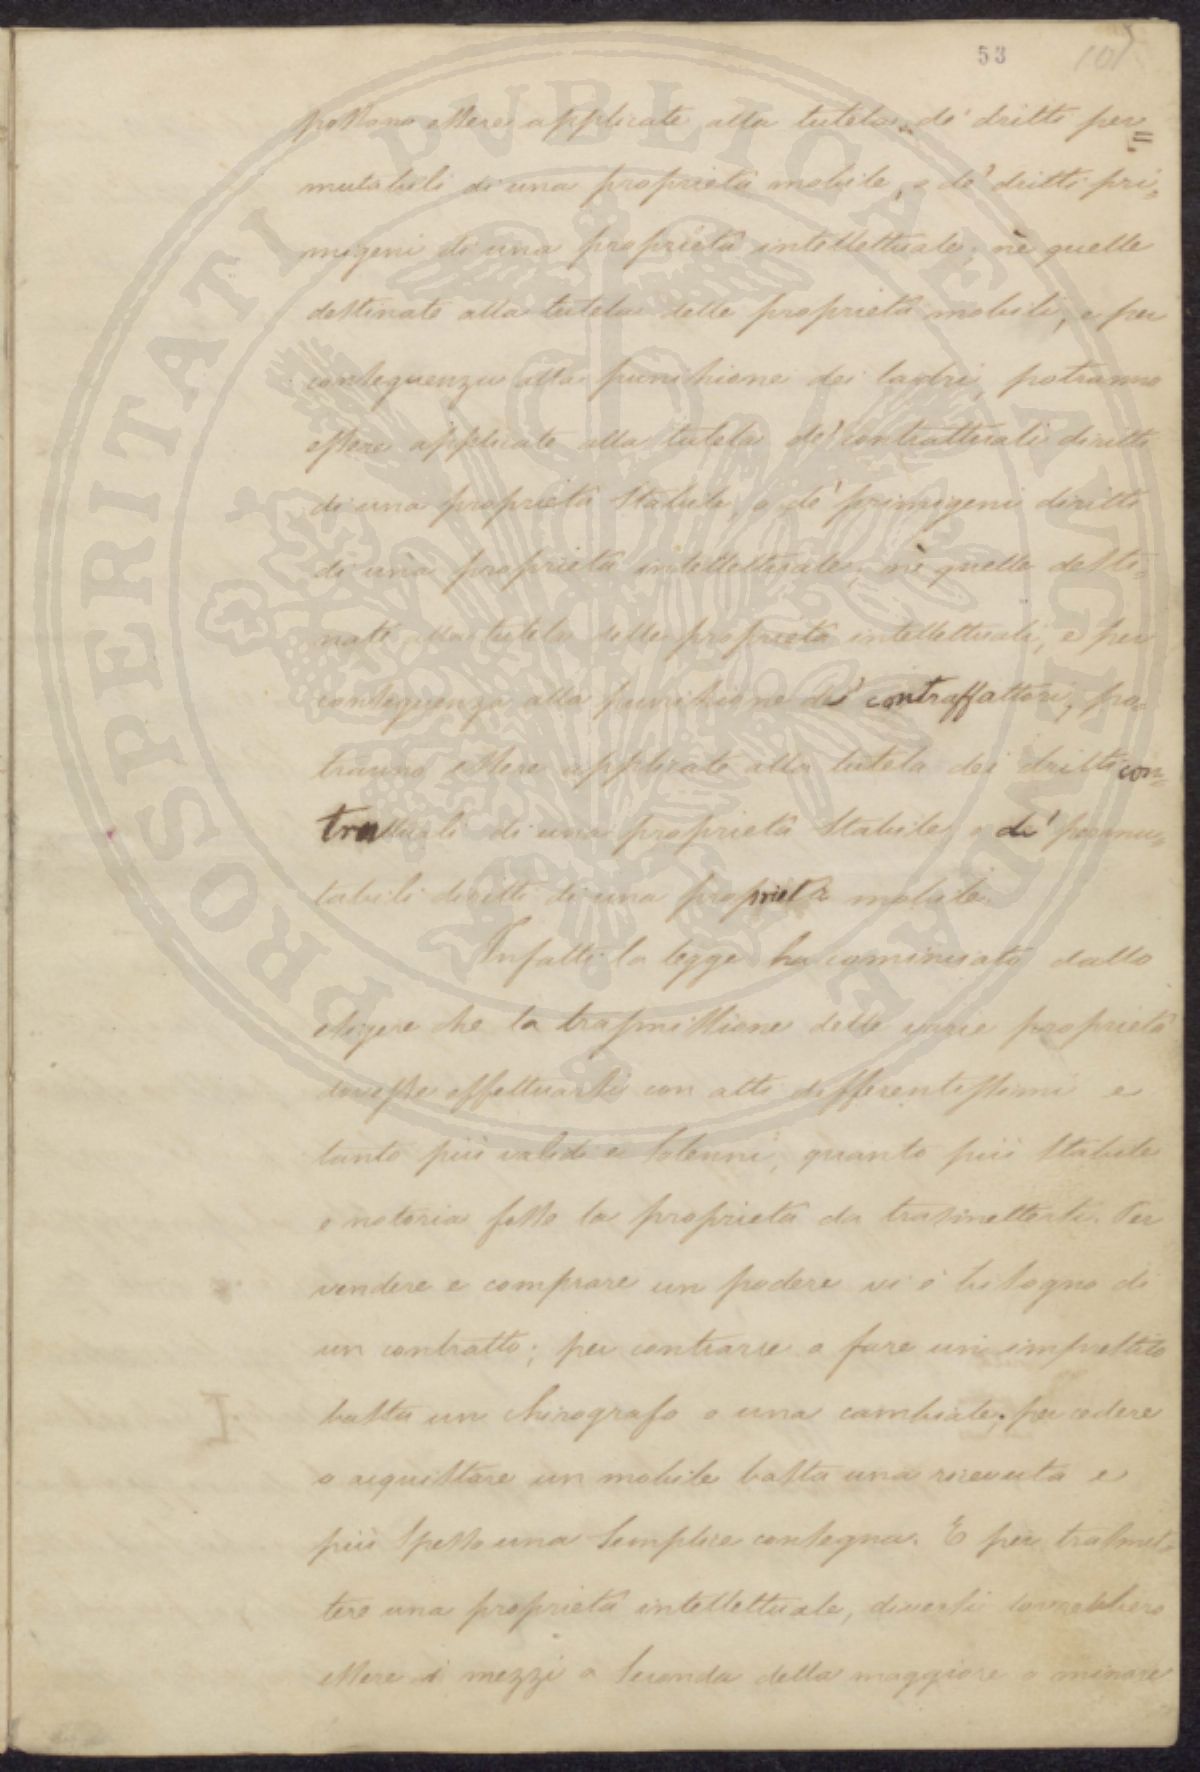 53
105
possono essere applicate alla tutela de' dritti per=
mutabili di una proprietà mobile, o de' dritti pri=
migeni di una proprietà intellettuale; nè quelle
destinate alla tutela delle proprietà mobili, e per
conseguenza alla punizione dei ladri, potranno
essere applicate alla tutela de' contrattuali diritti
di una proprietà stabile, o de' primigeni diritti
di una proprietà intellettuale; nè quelle desti=
nate alla tutela delle proprietà intellettuali, e per
conseguenza alla punizione de' contraffattori, po=
tranno essere applicate alla tutela dei dritti con=
trattuali di una proprietà stabile o de' permu=
tabili diritti di una proprietà mobile.
Infatti la legge ha cominciato dallo
esigere che la trasmissione delle varie proprietà
dovesse effettuarsi con atti differentissimi e
tanto più validi e solenni, quanto più stabile
e notoria fosse la proprietà da trasmettersi. Per
vendere e comprare un podere vi è bisogno di
un contratto; per contrarre o fare un imprestito
basta un chirografo o una cambiale; per cedere
o acquistare un mobile basta una ricevuta e
più spesso una semplice consegna. E per trasmet=
tere una proprietà intellettuale, diversi dovrebbero
essere i mezzi a seconda della maggiore o minore
PROSPERITATI PVBLICAE AVGENDAE